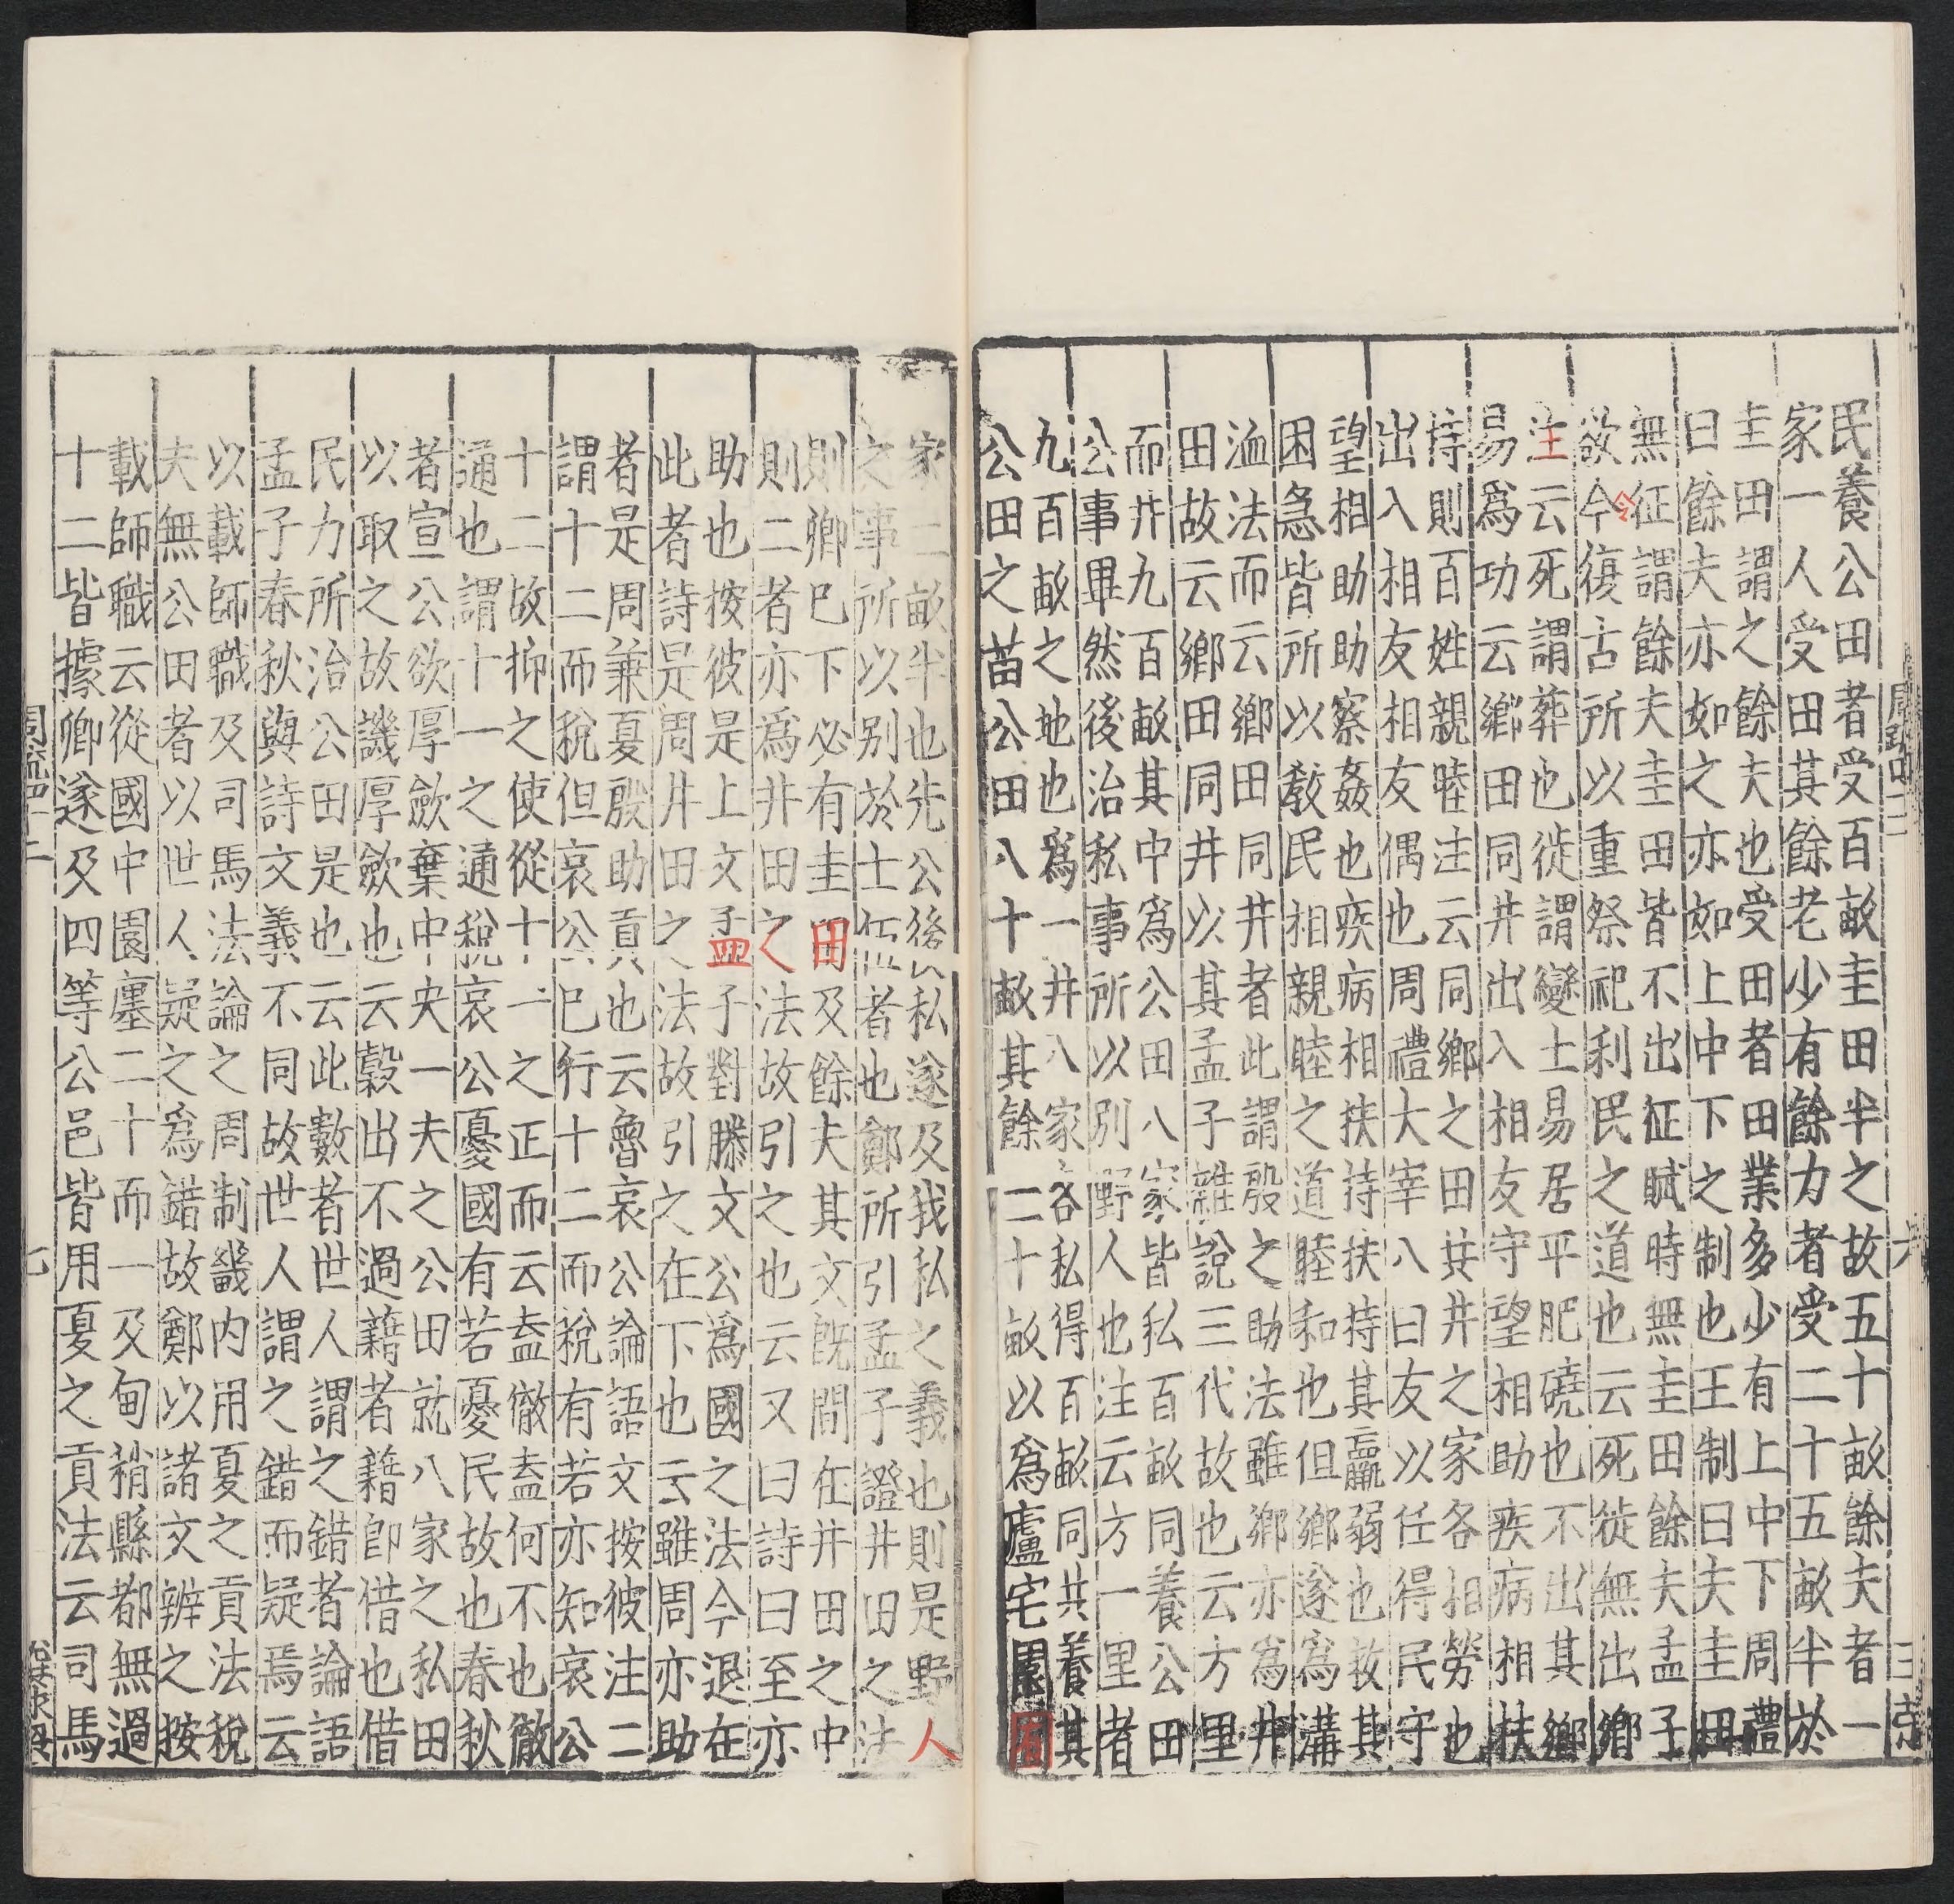 民養公田者受百畝圭田半之故五十畝餘夫者一
家一人受田其餘老少有餘力者受二十五畝半於
圭田謂之餘夫也受田者田業多少有上中下周禮
曰餘夫亦如之亦如上中下之制也王制曰夫圭田
無征謂餘夫圭田皆不出征賦時無圭田餘夫孟子
欲令復古所以重祭祀利民之道也云死徙無出鄉
注云死謂葬也徙謂變土易居平肥磽也不出其鄉
易爲功云鄉田同井出入相友守望相助疾病相扶
持則百姓親睦注云同鄉之田共井之家各相勞也
出入相友相友偶也周禮大宰八曰友以任得民守
望相助助察姦也疾病相扶持扶持其羸弱也救其
困急皆所以敎民相親睦之道睦和也但鄉遂爲溝
洫法而云鄉田同井者此謂殷之助法雖鄉亦爲井
田故云鄉田同井以其孟子雜說三代故也云方里
而井井九百畝其中爲公田八家皆私百畝同養公田
公事畢然後治私事所以别野人也注云方一里者
九百畝之地也爲一井八家各私得百畝同共養其
公田之苗公田八十畝其餘二十畝以爲廬宅園圃
家二畝半也先公後私遂及我私之義也則是野人
之事所以别於士伍者也鄭所引孟子證井田之法
則卿巳下必有圭田及餘夫其文旣間在井田之中
則二者亦爲井田之法故引之也云又曰詩曰至亦
助也按彼是上文孟子對滕文公爲國之法今退在
此者詩是周井田之法故引之在下也云雖周亦助
者是周兼夏殷助貢也云魯哀公論語文按彼注二
謂十二而稅但哀公巳行十二而稅有若亦知哀公
十二故抑之使從十一之正而云盍徹盍何不也徹
通也謂十一之通稅哀公憂國有若憂民故也春秋
者宣公欲厚斂棄中央一夫之公田就八家之私田
以取之故譏厚斂也云穀出不過藉者藉卽借也借
民力所治公田是也云此數者世人謂之錯者論語
孟子春秋與詩文義不同故世人謂之錯而疑焉云
以載師職及司馬法論之周制畿内用夏之貢法稅
夫無公田者以世人疑之爲錯故鄭以諸文辨之按
載師職云從國中園廛二十而一及甸稍縣都無過
十二皆據鄉遂及四等公邑皆用夏之貢法云司馬